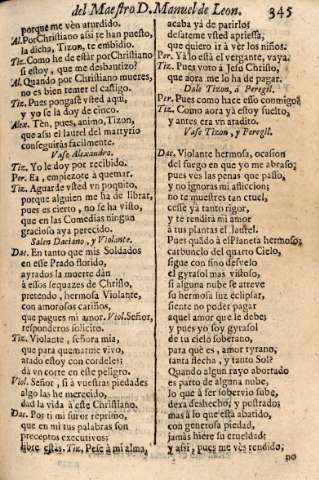 del Maestro D. Manuel de Leon. 345
porque me vèn aturdido.
Al. Por Christiano assi te han puesto,
la dicha, Tizon, te embidio.
Tiz. Como he de estàr por Christiano
si estoy, que me desbautizo?
Al. Quando por Christiano mueres,
no es bien temer el castigo.
Tiz. Pues pongase usted aqui,
y yo se la doy de cinco.
Alex. Ten, pues, animo, Tizon,
que assi el laurel del martyrio
conseguiràs facilmente.
Vase Alexandro.
Tiz. Yo le doy por recibido.
Per. Ea, empiezote à quemar.
Tiz. Aguarde usted vn poquito,
porque alguien me ha de librar,
pues es cierto, no se ha visto,
que en las Comedias ningun
gracioso aya perecido.
Salen Daciano, y Violante.
Dac. En tanto que mis Soldados
en esse Prado florido,
ayrados la muerte dàn
à essos sequazes de Christo,
pretendo, hermosa Violante,
con amorosos cariños,
que pagues mi amor. Viol. Señor,
responderos solicito.
Tiz. Violante, señora mia,
que para quemarme vivo,
atado estoy con cordeles;
dà vn corte en este peligro.
Viol. Señor, si à vuestras piedades
algo las he merecido,
dad la vida à este Christiano.
Dac. Por ti mi furor reprimo,
que en mi tus palabras son
preceptos executivos;
libre estàs. Tiz. Pese à mi alma,
acaba yà de parirlos!
desateme usted apriessa,
que quiero ir à vèr los niños.
Per. Yà lo està el vergante, vaya.
Tiz. Pues voto à Jesu Christo,
que aora me lo ha de pagar.
Dale Tizon, à Peregil.
Per. Pues como hace esso conmigo?
Tiz. Como aora yà estoy suelto,
y antes era vn atadito.
Vase Tizon, y Peregil.
Dac. Violante hermosa, ocasion
del fuego en que yo me abraso,
pues vès las penas que passo,
y no ignoras mi afliccion;
no te muestres tan cruel,
cesse yà tanto rigor,
y te rendirà mi amor
à tus plantas el laurel.
Pues quando à el Planeta hermoso,
carbunclo del quarto Cielo,
sigue con fino desvelo
el gyrasol mas vistoso,
si alguna nube se atreve
so hermosa luz eclipsar,
siente no poder pagar
aquel amor que le debe;
y pues yo soy gyrasol
de tu cielo soberano,
para què es, amor tyrano,
tanta flecha, y tanto Sol?
Quando algun rayo abortado
es parto de alguna nube,
lo que à ser sobervio sube,
dexa deshecho, y postrado;
mas à lo que està abatido,
con generosa piedad,
jamàs hiere su crueldad;
y assi, pues me vès rendido,
no